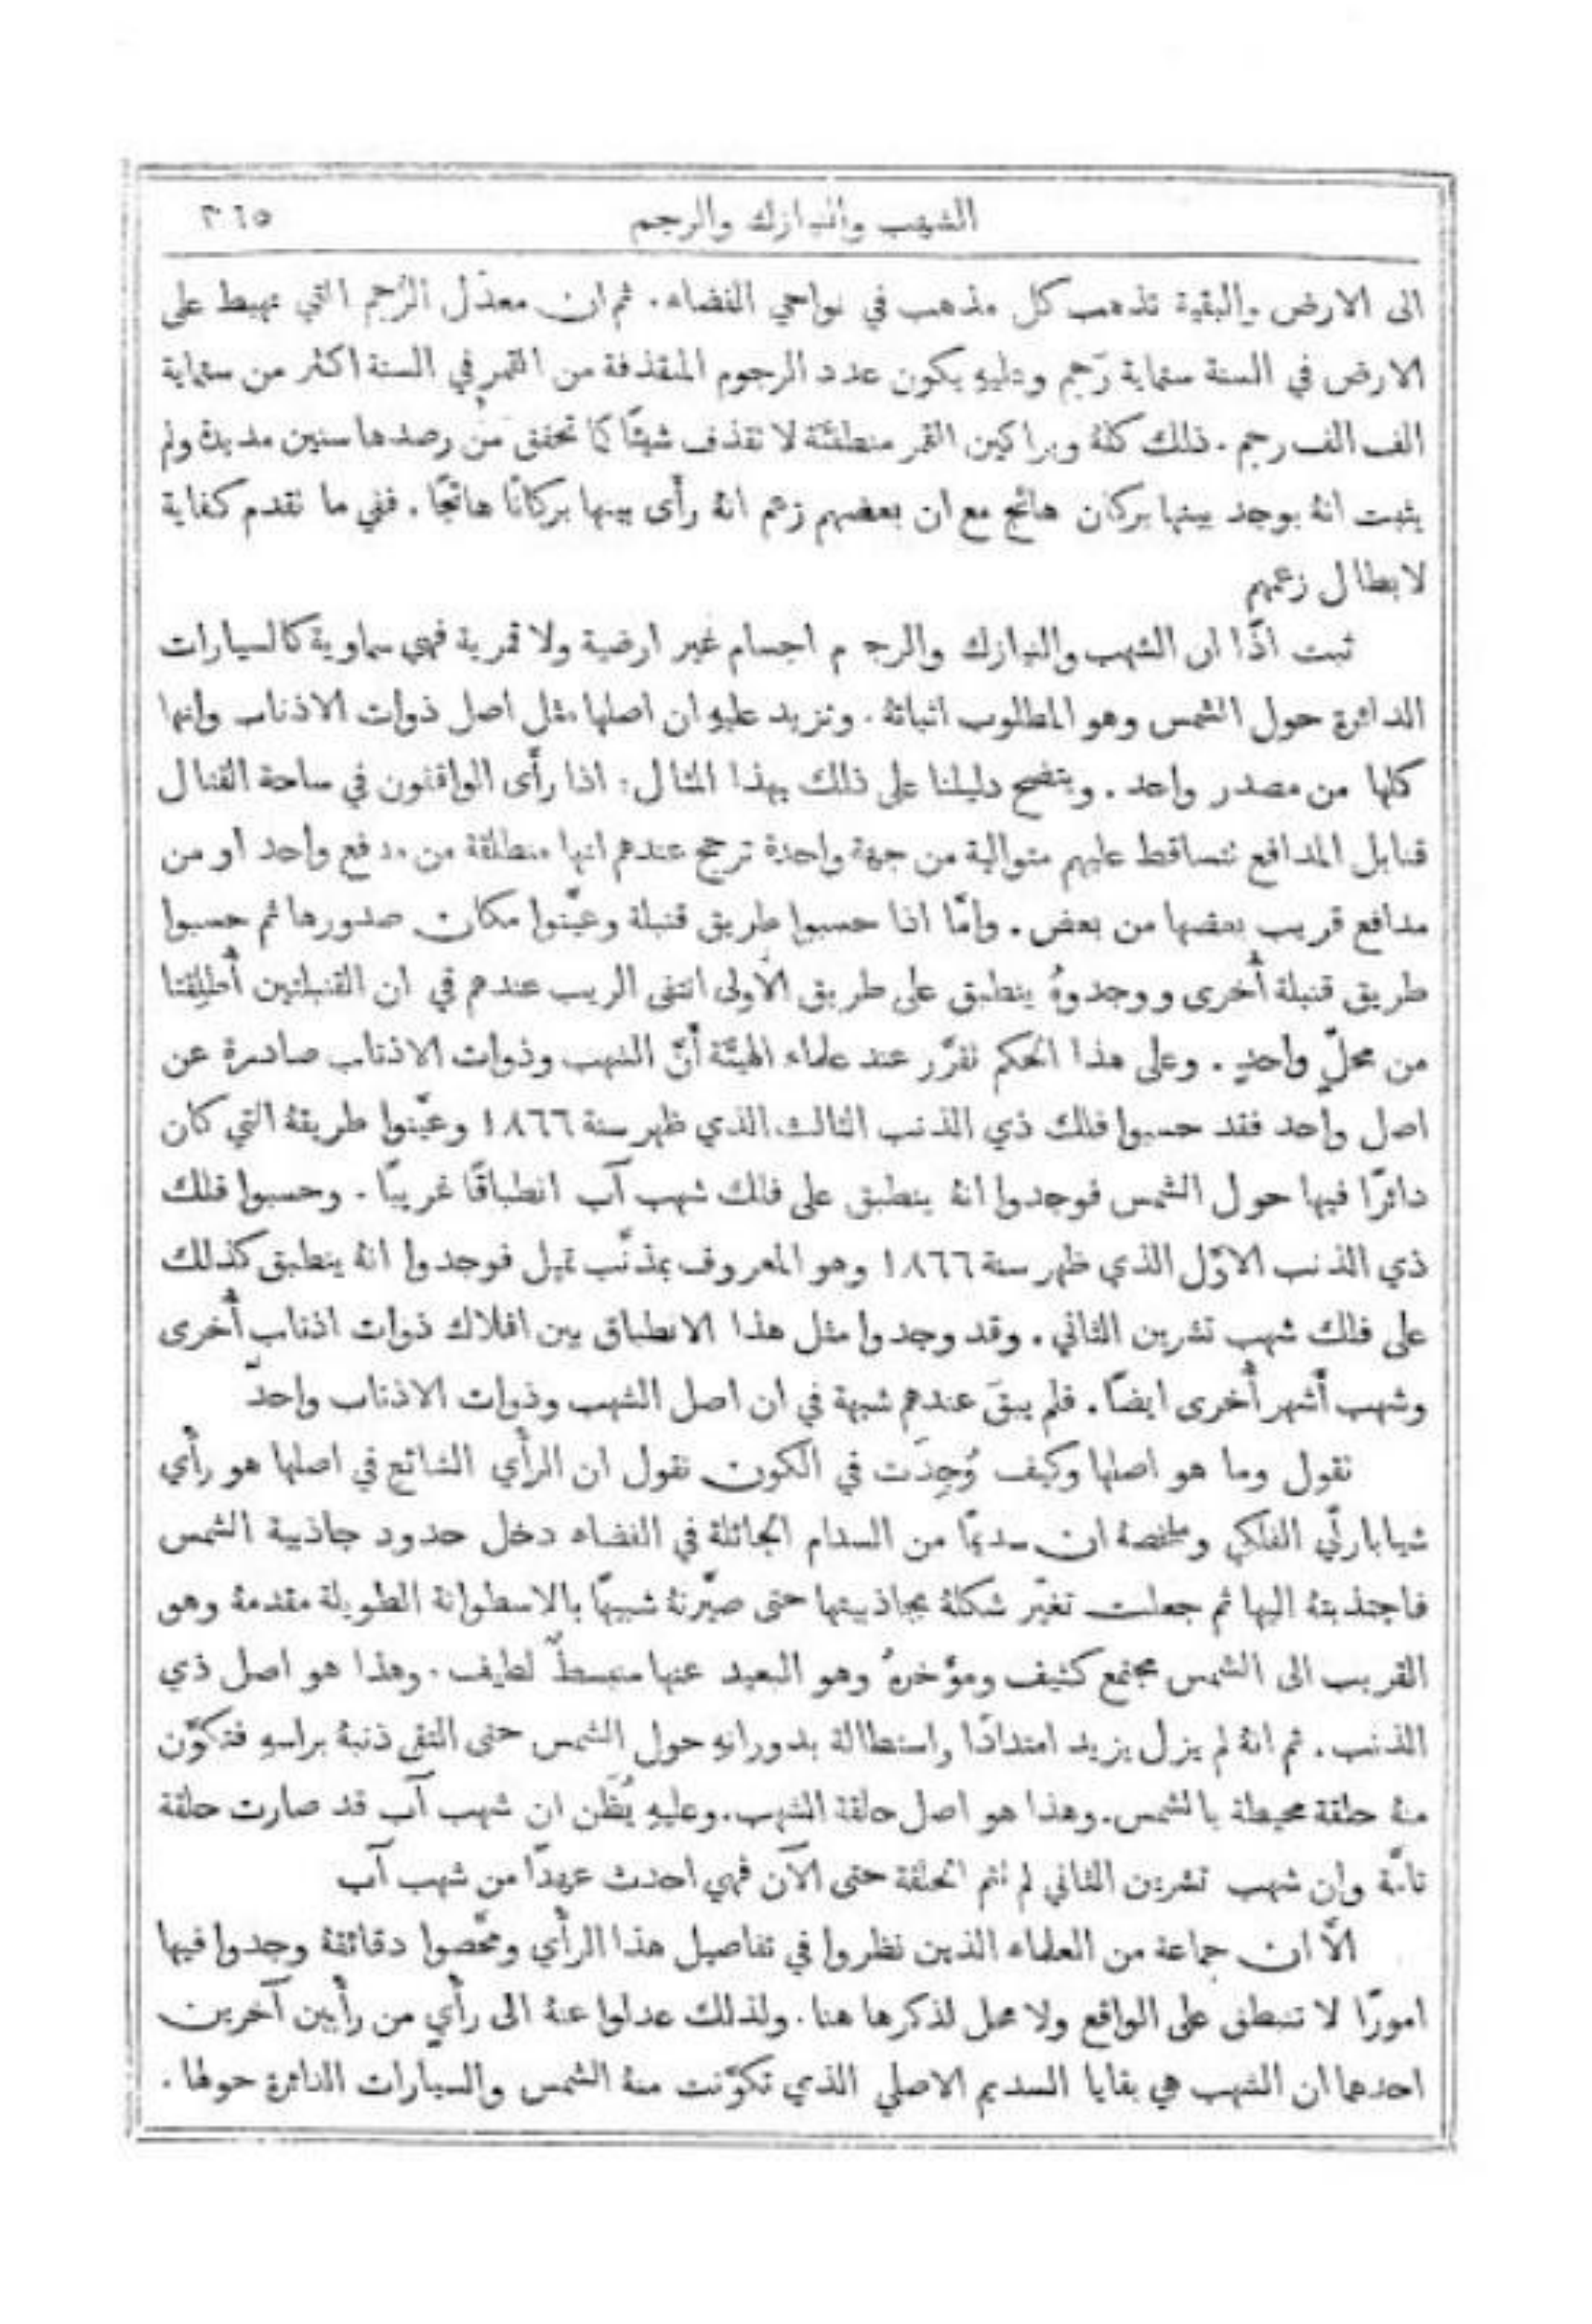 الشهب والنيازك والرجم ٣٦٥
الى الارض والبقية تذهب كل مذهب في نواحي الفضاء. ثم ان معدَّل الرُجم التي تهبط على
الارض في السنة ستماية رَجم وعليهِ يكون عدد الرجوم المنقذفة من القمر في السنة اكثر من ستماية
الف الف رجم. ذلك كلهُ وبراكين القمر منطفئة لا تقذف شيئًا كما تحقق مَن رصدها سنين مديدة ولم
يثبت انهُ يوجد بينها بركان هائج مع ان بعضهم زعم انهُ رأَى بينها بركانًا هائجًا. ففي ما تقدم كفاية
لابطال زعمهم
ثبت اذًا ان الشهب والنيازك والرجم اجسام غير ارضية ولا قمرية فهي سماوية كالسيارات
الدائرة حول الشمس وهو المطلوب اثباتهُ. ونزيد عليهِ ان اصلها مثل اصل ذوات الاذناب وانها
كلها من مصدر واحد. ويتضح دليلنا على ذلك بهذا المثال: اذا رأَى الواقفون في ساحة القتال
قنابل المدافع تتساقط عليهم متوالية من جهة واحدة ترجح عندهم انها منطلقة من مدفع واحد او من
مدافع قريب بعضها من بعض. وامَّا اذا حسبوا طريق قنبلة وعيَّنوا مكان صدورها ثم حسبوا
طريق قنبلة أُخرى ووجدوهُ ينطبق على طريق الأولى انتفى الريب عندهم في ان القنبلتين أُطلِقتا
من محلٍّ واحدٍ. وعلى هذا الحكم تقرَّر عند علماء الهيئة أنَّ الشهب وذوات الاذناب صادرة عن
اصل واحد فقد حسبوا فلك ذي الذنب الثالث الذي ظهر سنة ١٨٦٦ وعيَّنوا طريقهُ التي كان
دائرًا فيها حول الشمس فوجدوا انهُ ينطبق على فلك شهب آب انطباقًا غريبًا. وحسبوا فلك
ذي الذنب الاوَّل الذي ظهر سنة ١٨٦٦ وهو المعروف بمذنَّب تمبل فوجدوا انهُ ينطبق كذلك
على فلك شهب تشرين الثاني. وقد وجدوا مثل هذا الانطباق بين افلاك ذوات اذناب أُخرى
وشهب أَشهر أُخرى ايضًا. فلم يبقَ عندهم شبهة في ان اصل الشهب وذوات الاذناب واحد
نقول وما هو اصلها وكيف وُجِدَت في الكون نقول ان الرأي الشائع في اصلها هو رأي
شياباربلّي الفلكي وملخصهُ ان سديمًا من السدام الجائلة في الفضاء دخل حدود جاذبية الشمس
فاجتذبتهُ اليها ثم جعلت تغيّر شكلهُ بجاذبيتها حتى صيَّرتهُ شبيهًا بالاسطوانة الطويلة مقدمهُ وهو
القريب الى الشمس مجتمع كثيف ومؤَخرهُ وهو البعيد عنها منبسطٌ لطيف. وهذا هو اصل ذي
الذنب. ثم انهُ لم يزل يزيد امتدادًا واستطالة بدورانهِ حول الشمس حتى التقى ذنبهُ براسهِ فتكوَّن
منهُ حلقة محيطة بالشمس. وهذا هو اصل حلقة الشهب. وعليهِ يُظَن ان شهب آب قد صارت حلقة
تامَّة وان شهب تشرين الثاني لم تتم الحلقة حتى الآن فهي احدث عهدًا من شهب آب
الَّا ان جماعة من العلماء الذين نظروا في تفاصيل هذا الرأي ومحَّصوا دقائقهُ وجدوا فيها
امورًا لا تنطبق على الواقع ولا محل لذكرها هنا. ولذلك عدلوا عنهُ الى رأيٍ من رأيين آخرين
احدهما ان الشهب هي بقايا السديم الاصلي الذي تكوَّنت منهُ الشمس والسيارات الدائرة حولها.